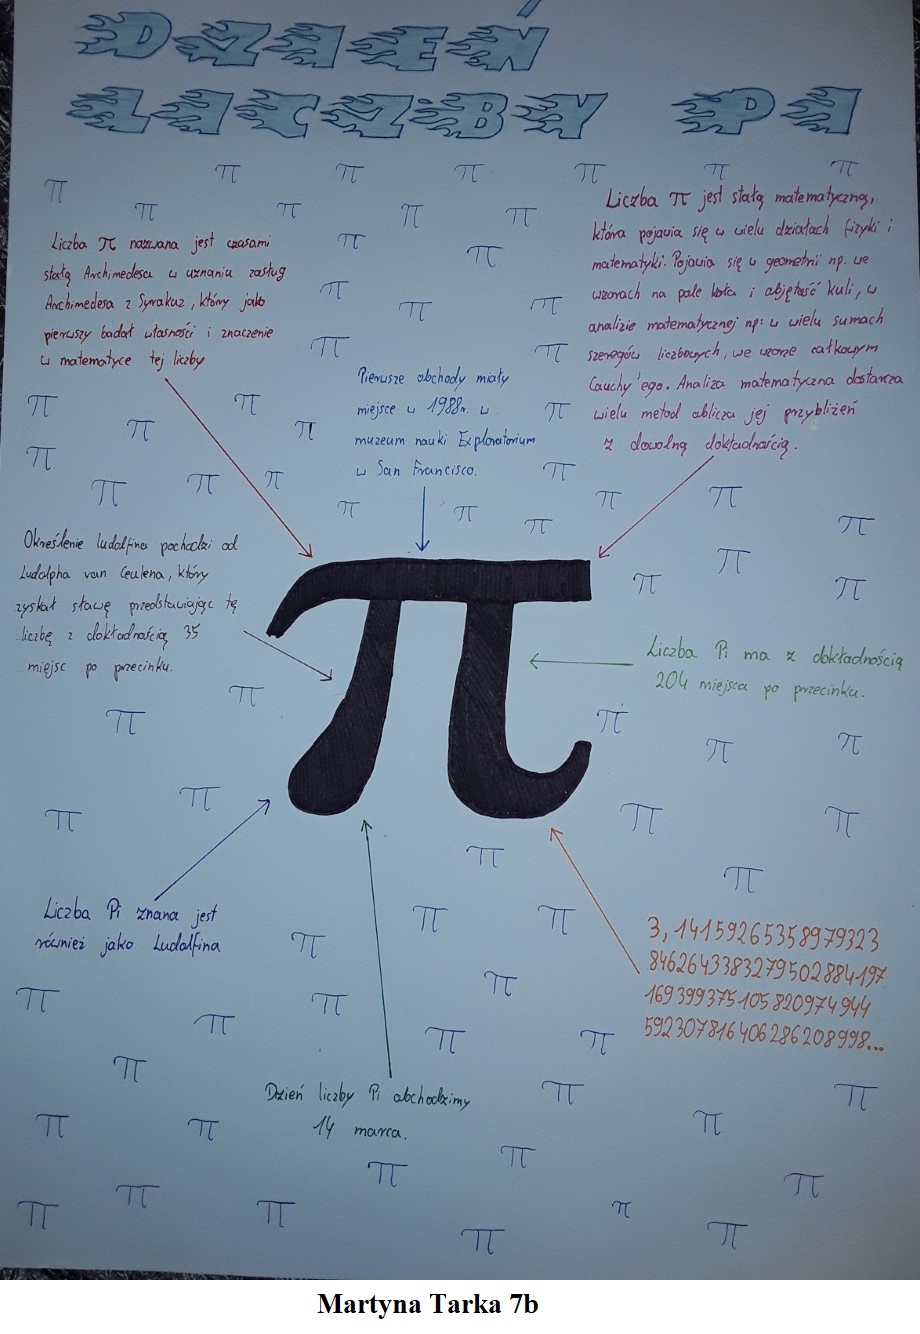 DZIEŃ
LICZBY PI
Liczba π jest stałą matematyczną,
która pojawia się w wielu działach fizyki i
matematyki. Pojawia się w geometrii np. we
wzorach na pole koła i objętość kuli, w
analizie matematycznej np: w wielu sumach
szeregów liczbowych, we wzorze całkowym
Cauchy'ego. Analiza matematyczna dostarcza
wielu metod oblicza jej przybliżeń
z dowolną dokładnością.
Liczba π nazwana jest czasami
stałą Archimedesa w uznaniu zasług
Archimedesa z Syrakuz, który jako
pierwszy badał własności i znaczenie
w matematyce tej liczby
Pierwsze obchody miały
miejsce w 1988r. w
muzeum nauki Exploratorium
w San Francisco.
Określenie ludolfina pochodzi od
Ludolpha van Ceulena, który
zyskał sławę przedstawiając tę
liczbę z dokładnością 35
miejsc po przecinku.
π
Liczba Pi ma z dokładnością
204 miejsca po przecinku.
Liczba Pi znana jest
również jako Ludolfina
3,14159265358979323
846264338327950288419​7
169399375105820974944
592307816406286208998...
Dzień liczby Pi obchodzimy
14 marca.
Martyna Tarka 7b